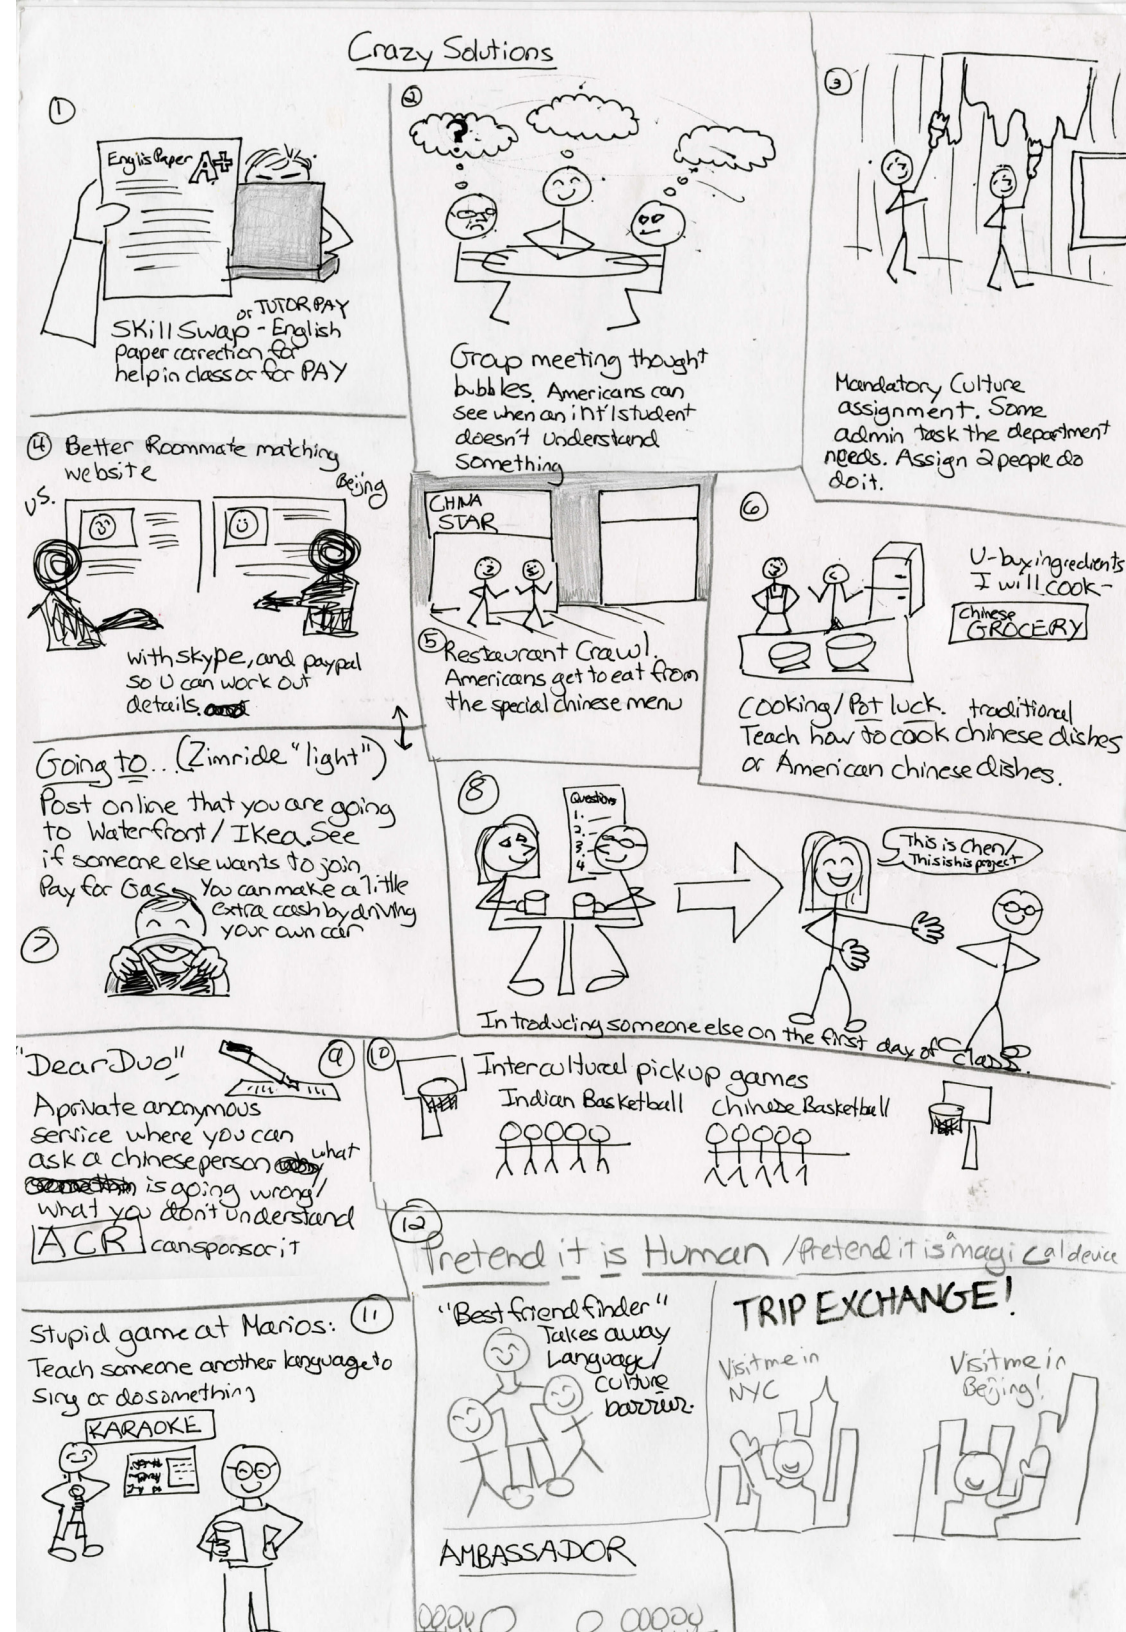 Crazy Solutions
①
Englis Paper
A+
or TUTOR PAY
Skill Swap - English
paper correction for
help in class or for PAY
②
?
Group meeting thought
bubbles. Americans can
see when an int'l student
doesn't understand
something
③
Mandatory Culture
assignment. Some
admin task the department
needs. Assign 2 people do
do it.
④ Better Roommate matching
website
US.
Beijing
with skype, and paypal
so U can work out
details
CHINA
STAR
⑤ Restaurant Crawl.
Americans get to eat from
the special chinese menu
⑥
U-buy ingredients
I will cook-
Chinese
GROCERY
Cooking/Pot luck. traditional
Teach how to cook chinese dishes
or American chinese dishes.
Going to... (Zimride "light")
Post online that you are going
to Waterfront/Ikea. See
if someone else wants to join
Pay for Gas
You can make a little
extra cash by driving
your own car
⑦
⑧
Questions
1.
2.
3.
4
This is Chen/
This is his project
Introducing someone else on the first day of class.
"Dear Duo"
⑨
A private anonymous
service where you can
ask a chinese person what
is going wrong/
what you don't understand
ACR can sponsor it
⑩
Intercultural pickup games
Indian Basketball
Chinese Basketball
⑪
Stupid game at Marios:
Teach someone another language to
sing or do something
KARAOKE
⑫
Pretend it is Human / Pretend it is a magical device
"Best friend finder"
Takes away
Language/
culture
barrier.
TRIP EXCHANGE!
Visit me in
NYC
Visit me in
Beijing!
AMBASSADOR